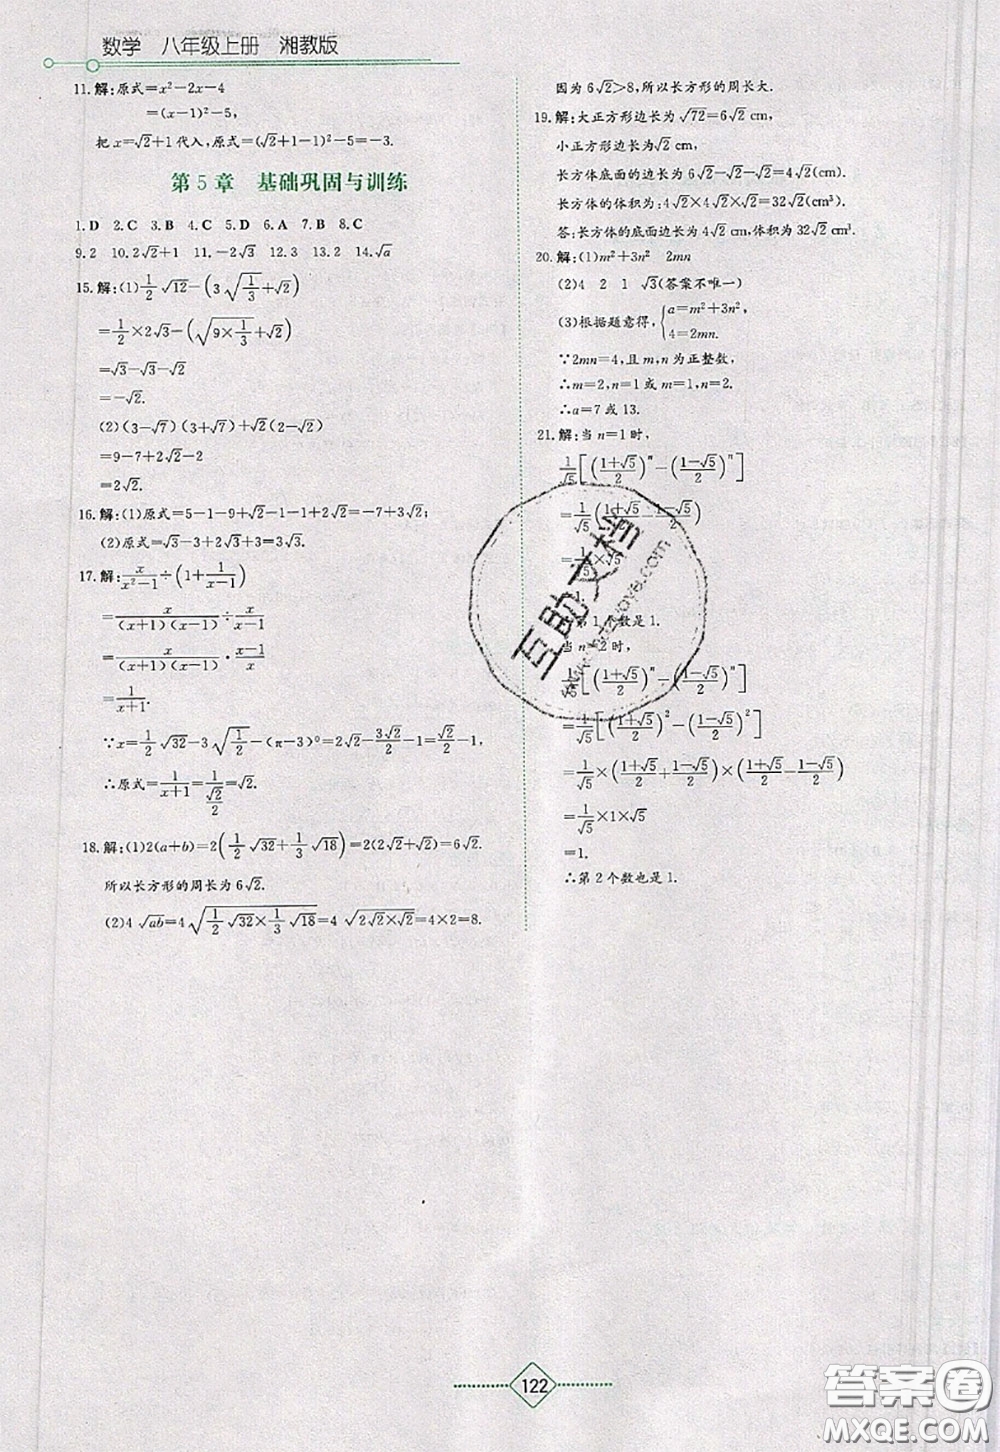 数学 八年级上册 湘教版
11.解:原式=x²-2x-4
=(x-1)²-5,
把x=√2+1代入,原式=(√2+1-1)²-5=-3.
第5章 基础巩固与训练
1.D 2.C 3.B 4.C 5.D 6.A 7.B 8.C
9.2 10.2√2+1 11.-2√3 12.3 13.2 14.√a
15.解:(1)1/2 √12-(3√(1/3)+√2)
=1/2×2√3-(√(9×1/3)+√2)
=√3-√3-√2
=-√2.
(2)(3-√7)(3+√7)+√2(2-√2)
=9-7+2√2-2
=2√2.
16.解:(1)原式=5-1-9+√2-1-1+2√2=-7+3√2;
(2)原式=√3-√3+3√3=3√3.
17.解:x/(x²-1)÷(1+1/(x-1))
=x/((x+1)(x-1))÷x/(x-1)
=x/((x+1)(x-1))·(x-1)/x
=1/(x+1).
∵x=1/2 √32-3√(1/2)-(π-3)⁰=2√2-3√2/2-1=√2/2-1,
∴原式=1/(x+1)=1/(√2/2)=√2.
18.解:(1)2(a+b)=2(1/2 √32+1/3 √18)=2(2√2+√2)=6√2.
所以长方形的周长为6√2.
(2)4√ab=4√(1/2 √32×1/3 √18)=4√(2√2×√2)=4×2=8.
因为6√2>8,所以长方形的周长大.
19.解:大正方形边长为√72=6√2 cm,
小正方形边长为√2 cm,
长方体底面的边长为6√2-√2-√2=4√2(cm).
长方体的体积为:4√2×4√2×√2=32√2(cm³).
答:长方体的底面边长为4√2 cm,体积为32√2 cm³.
20.解:(1)m²+3n² 2mn
(2)4 2 1 √3(答案不唯一)
(3)根据题意得,{a=m²+3n², 4=2mn.
∵2mn=4,且m,n为正整数,
∴m=2,n=1或m=1,n=2.
∴a=7或13.
21.解:当n=1时,
1/√5[((1+√5)/2)ⁿ-((1-√5)/2)ⁿ]
=1/√5((1+√5)/2-(1-√5)/2)
=1/√5×√5
第1个数是1.
当n=2时,
1/√5[((1+√5)/2)ⁿ-((1-√5)/2)ⁿ]
=1/√5[((1+√5)/2)²-((1-√5)/2)²]
=1/√5×((1+√5)/2+(1-√5)/2)×((1+√5)/2-(1-√5)/2)
=1/√5×1×√5
=1.
∴第2个数也是1.
互助文档
122
答案圈
MXQE.COM